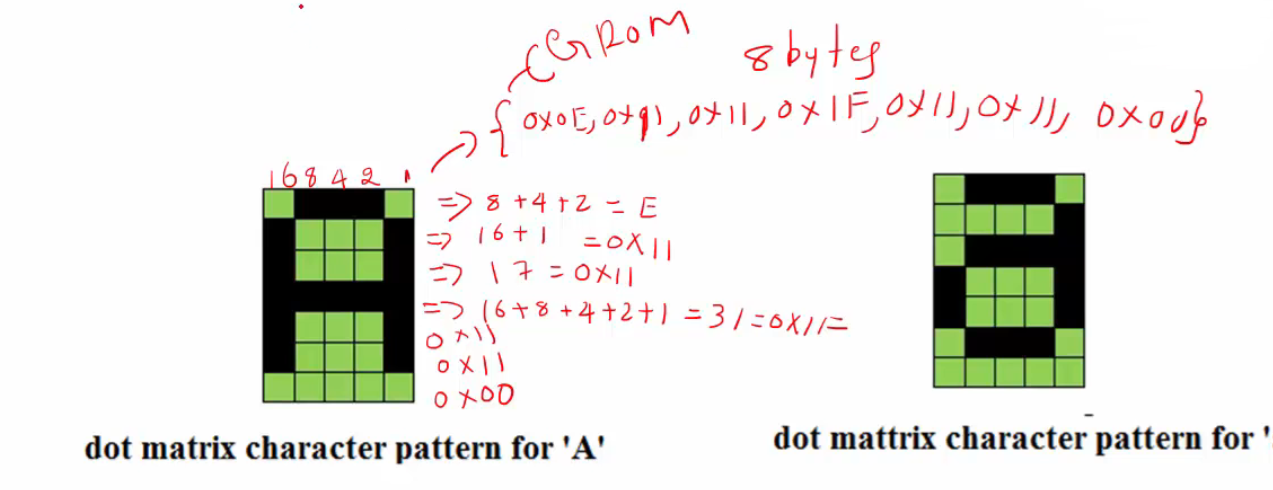 CGROM
8 bytes
{0x0E, 0x11, 0x11, 0x1F, 0x11, 0x11, 0x00}
16 8 4 2 1
=> 8 + 4 + 2 = E
=> 16 + 1 = 0x11
=> 17 = 0x11
=> 16 + 8 + 4 + 2 + 1 = 31 = 0x1F
0x11
0x11
0x00
dot matrix character pattern for 'A'
dot mattrix character pattern for '